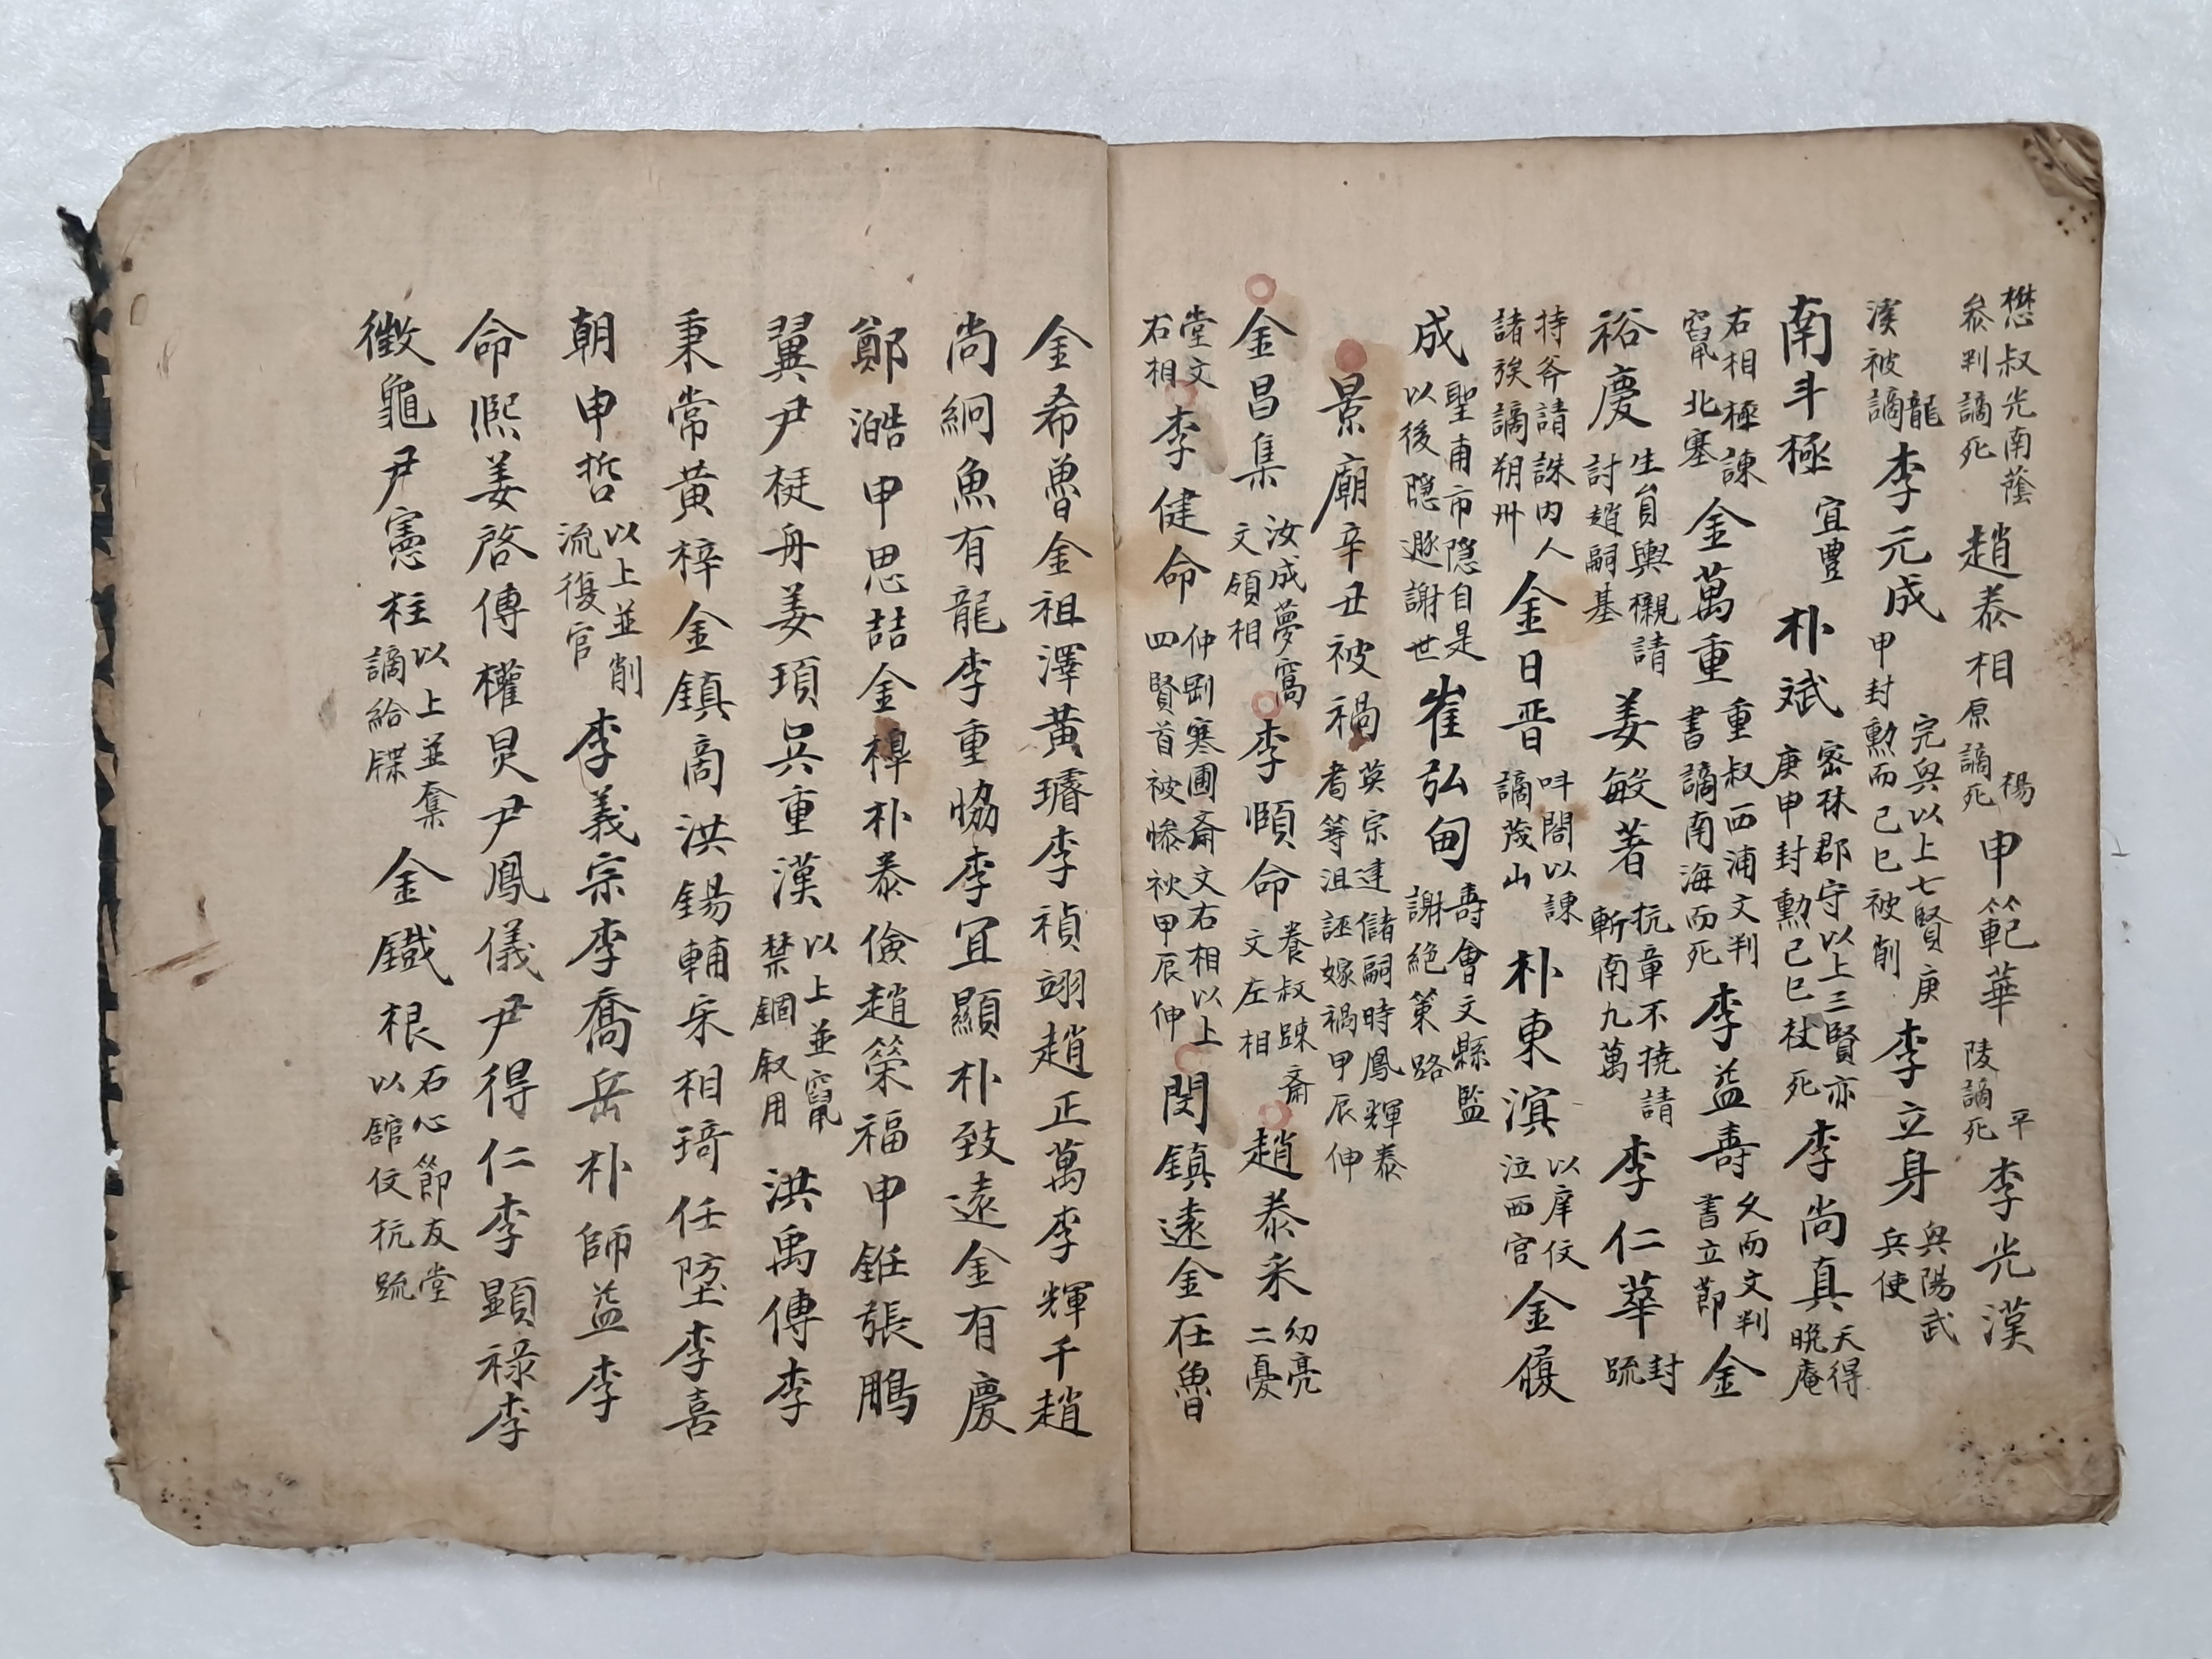 懋叔光南蔭
叅判謫死
趙泰相
楊
原謫死
申範華
平
陵謫死
李光漢
龍
漢被謫
李元成
完與以上七賢庚
申封勳而己巳被削
李立身
與陽武
兵使
南斗極
宜豐
朴斌
密林郡守以上三賢亦
庚申封勳己巳杖死
李尚真
天得
晩庵
右相極諫
竄北塞
金萬重
重叔西浦文判
書謫南海而死
李益壽
久而文判
書立節
金
裕慶
生員輿櫬請
討趙嗣基
姜敏著
抗章不撓請
斬南九萬
李仁華
封
疏
持斧請誅內人
諸疾謫朔州
金日晋
呌閤以諫
謫茂山
朴東演
以庠伩
泣西宮
金履
成
聖甫市隱自是
以後隱遯謝世
崔弘甸
壽會文縣監
謝絕策路
景廟辛丑被禍
英宗建儲嗣時鳳輝泰
耆等沮誣嫁禍甲辰伸
金昌集
汝成夢窩
文領相
李頤命
養叔踈齋
文左相
趙泰采
幼亮
二憂
堂文
右相
李健命
仲剛寒圃齋文右相以上
四賢首被慘秋甲辰伸
閔鎮遠金在魯
金希魯金祖澤黃璿李禎翊趙正萬李輝千趙
尚絅魚有龍李重恊李宜顯朴致遠金有慶
鄭澔申思喆金槹朴泰儉趙榮福申銋張鵬
翼尹挺舟姜頊吳重漢
以上並竄
禁錮叙用
洪禹傳李
秉常黃梓金鎮商洪錫輔宋相琦任埅李喜
朝申哲
以上並削
流復官
李義宗李喬岳朴師益李
命熈姜啓傅權炅尹鳳儀尹得仁李顯祿李
徵龜尹憲柱
以上並奪
謫給牒
金鐵根
石心節友堂
以舘伩抗疏